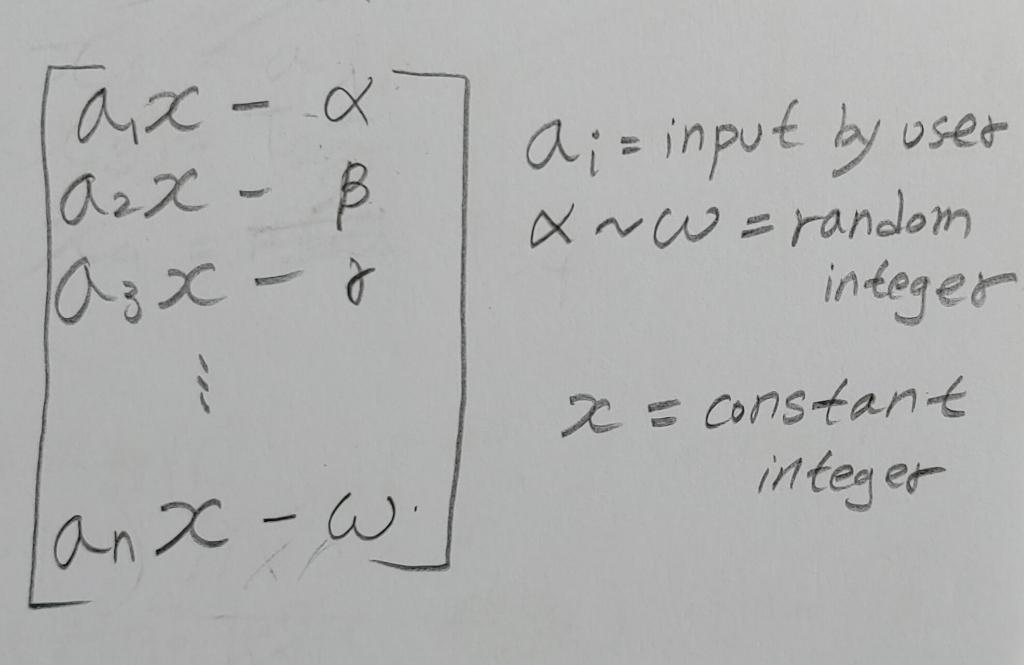 a₁x - α
a₂x - β
a₃x - γ
⋮
aₙx - ω
aᵢ = input by user
α ~ ω = random
integer
x = constant
integer